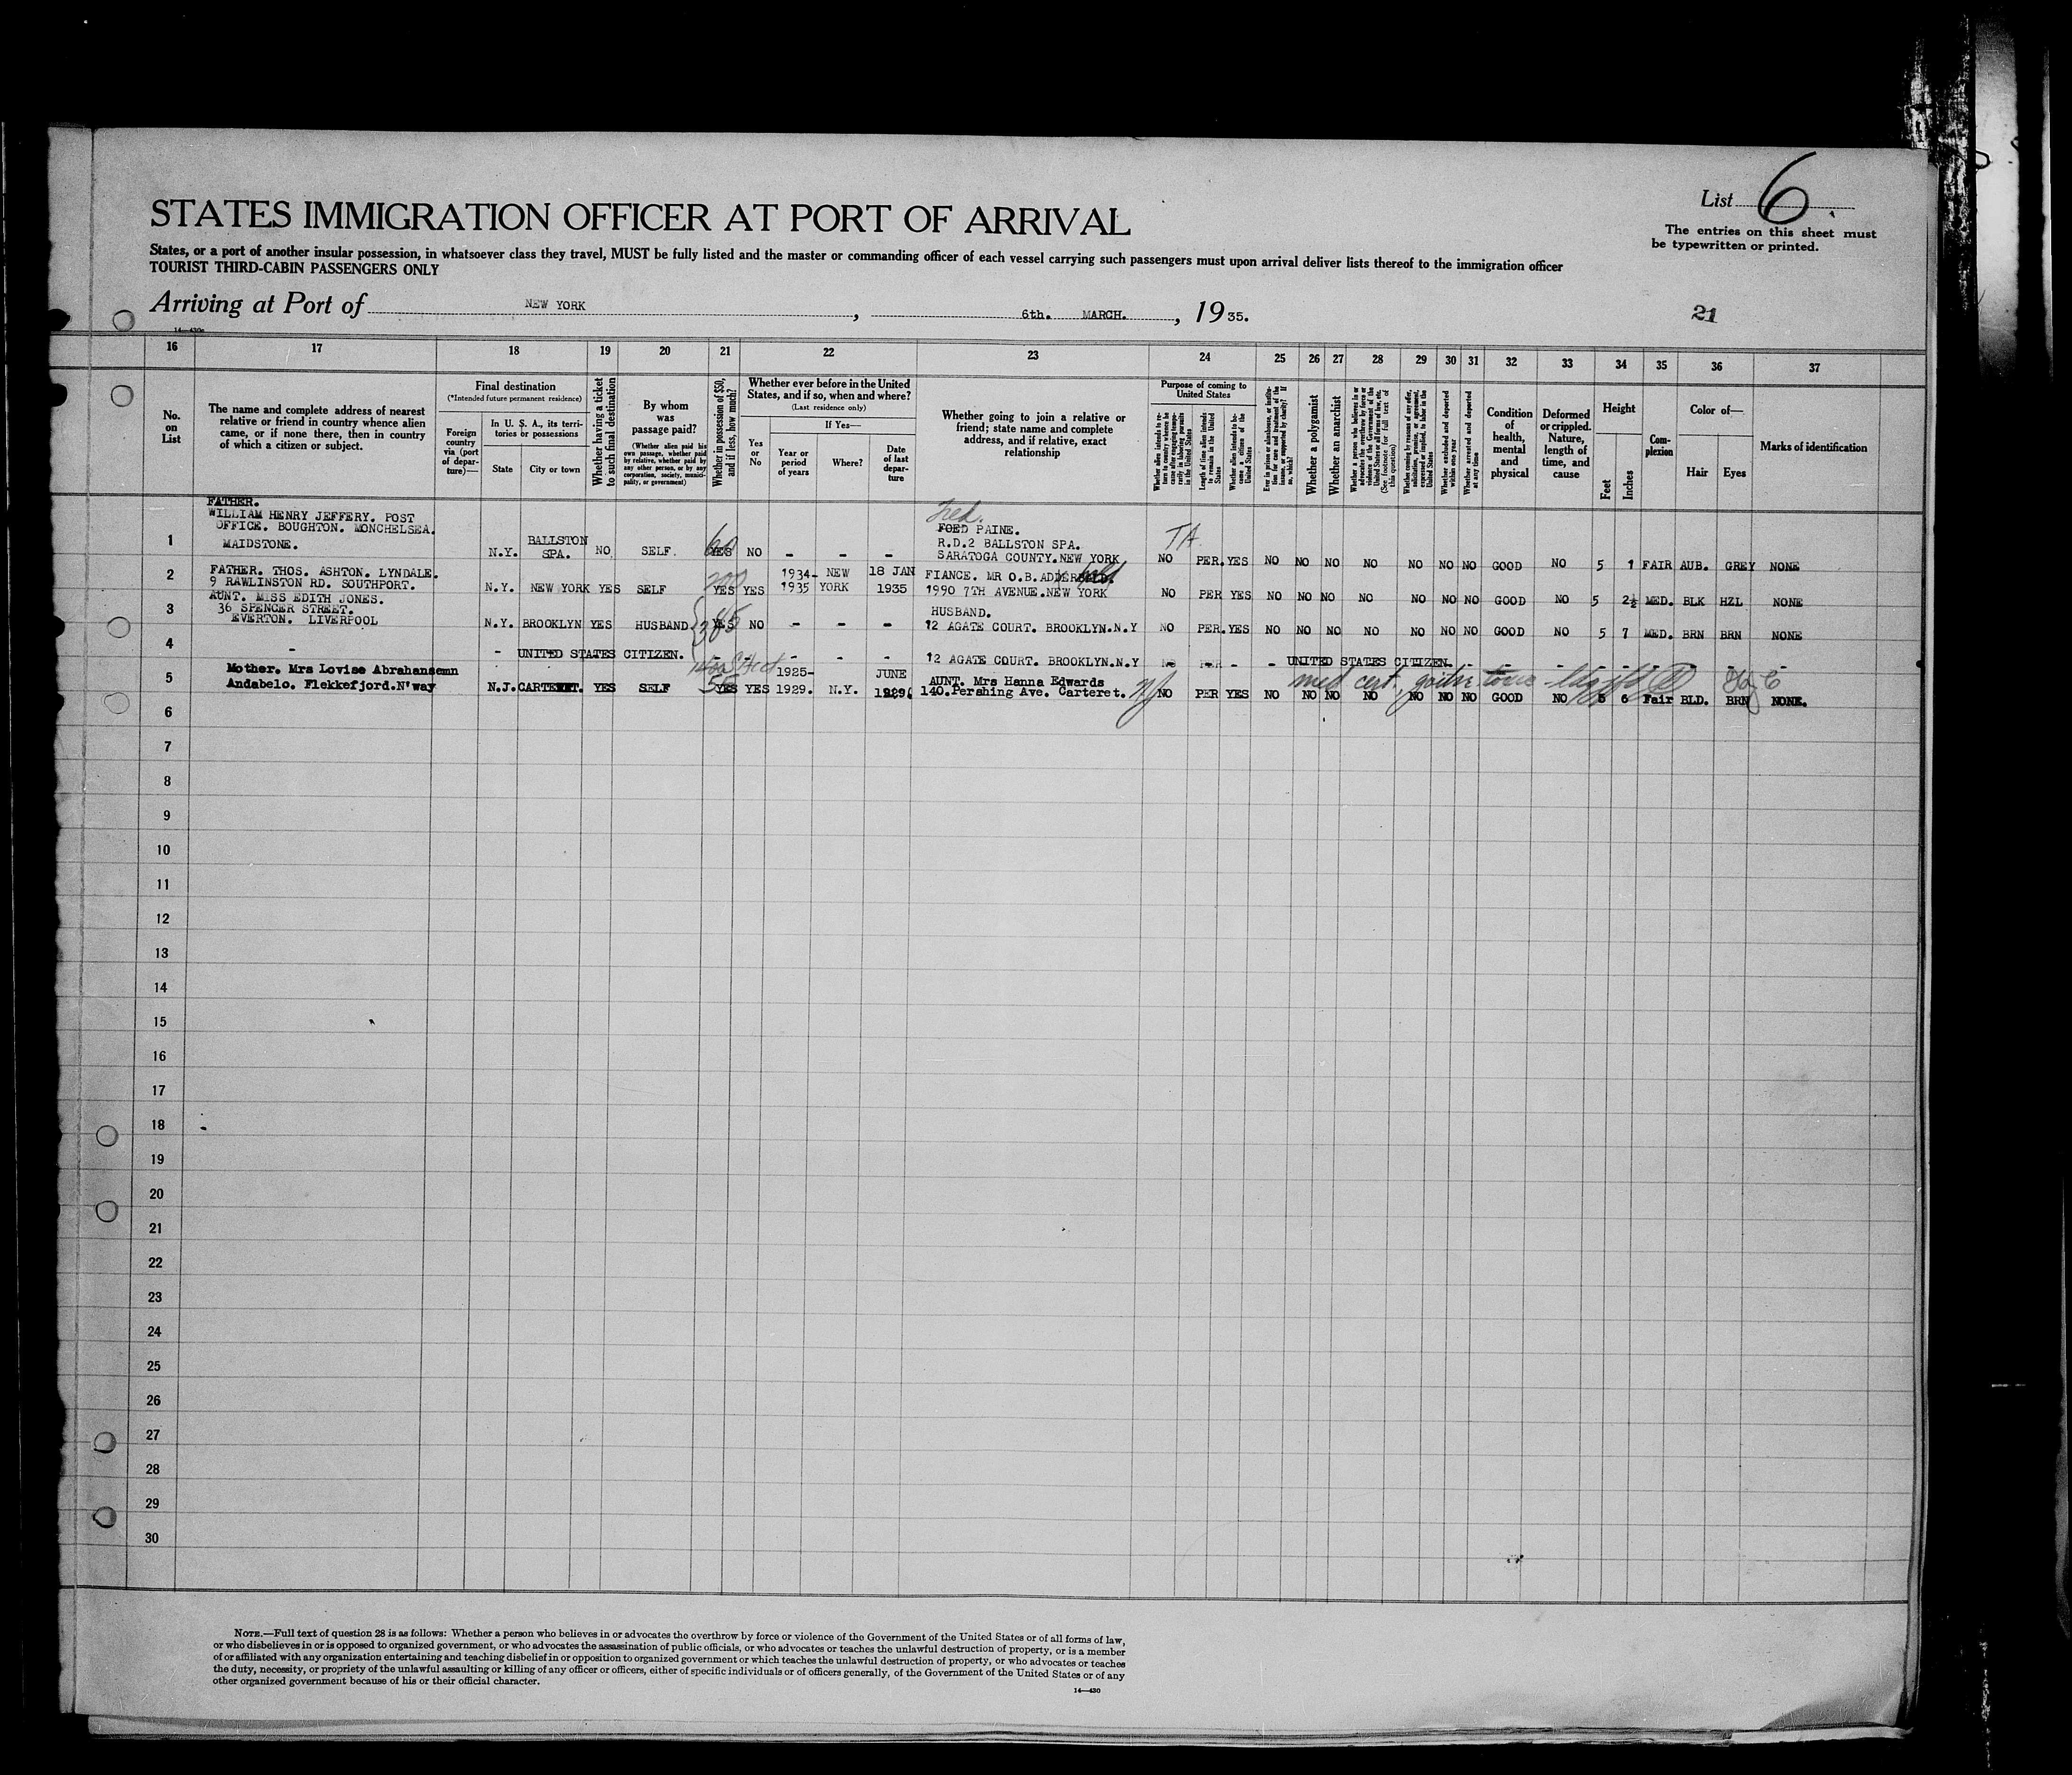 List 6
The entries on this sheet must
be typewritten or printed.
STATES IMMIGRATION OFFICER AT PORT OF ARRIVAL
States, or a port of another insular possession, in whatsoever class they travel, MUST be fully listed and the master or commanding officer of each vessel carrying such passengers must upon arrival deliver lists thereof to the immigration officer
TOURIST THIRD-CABIN PASSENGERS ONLY
Arriving at Port of NEW YORK , 6th. MARCH. , 1935.
21
16 17 18 19 20 21 22 23 24 25 26 27 28 29 30 31 32 33 34 35 36 37
No. on List
The name and complete address of nearest
relative or friend in country whence alien
came, or if none there, then in country
of which a citizen or subject.
Final destination
(*Intended future permanent residence)
Foreign country via (port of departure)—
In U. S. A., its territories or possessions
State
City or town
Whether having a ticket to such final destination
By whom was passage paid?
(Whether alien paid his own passage, whether paid by relative, whether paid by any other person, or by any corporation, society, municipality, or government)
Whether in possession of $50, and if less, how much?
Whether ever before in the United States, and if so, when and where?
(Last residence only)
Yes or No
If Yes—
Year or period of years
Where?
Date of last departure
Whether going to join a relative or
friend; state name and complete
address, and if relative, exact
relationship
Purpose of coming to United States
Whether a polygamist
Whether an anarchist
Condition of health, mental and physical
Deformed or crippled. Nature, length of time, and cause
Height
Feet
Inches
Complexion
Color of—
Hair
Eyes
Marks of identification
FATHER.
WILLIAM HENRY JEFFERY. POST
OFFICE. BOUGHTON. MONCHELSEA.
MAIDSTONE.
1 N.Y. BALLSTON SPA. NO SELF. 60 YES NO - - -
Fred.
PAINE.
R.D.2 BALLSTON SPA.
SARATOGA COUNTY.NEW YORK
TA
NO PER. YES NO NO NO NO NO NO NO GOOD NO 5 1 FAIR AUB. GREY NONE
2 FATHER. THOS. ASHTON. LYNDALE.
9 RAWLINSTON RD. SOUTHPORT.
N.Y. NEW YORK YES SELF 200 YES YES 1934-1935 NEW YORK 18 JAN 1935
FIANCE. MR O.B.
1990 7TH AVENUE.NEW YORK
NO PER YES NO NO NO NO NO NO NO GOOD NO 5 2½ MED. BLK HZL NONE
AUNT. MISS EDITH JONES.
3 36 SPENCER STREET.
EVERTON. LIVERPOOL
N.Y. BROOKLYN YES HUSBAND 385 YES NO - - -
HUSBAND.
12 AGATE COURT. BROOKLYN.N.Y
NO PER. YES NO NO NO NO NO NO NO GOOD NO 5 7 MED. BRN BRN NONE
4 - - UNITED STATES CITIZEN. - - - - 12 AGATE COURT. BROOKLYN.N.Y - - UNITED STATES CITIZEN. - - - - - - - -
5 Mother. Mrs Lovise Abrahansemn
Andabelo. Flekkefjord.N'way
N.J. YES SELF YES YES 1925-1929. N.Y. JUNE
AUNT. Mrs Hanna Edwards
140.Pershing Ave. Carteret. NJ
med cert. goitre
NO PER YES NO NO NO NO NO NO NO GOOD NO 5 6 Fair BLD. BRN NONE.
6
7
8
9
10
11
12
13
14
15
16
17
18
19
20
21
22
23
24
25
26
27
28
29
30
NOTE.—Full text of question 28 is as follows: Whether a person who believes in or advocates the overthrow by force or violence of the Government of the United States or of all forms of law,
or who disbelieves in or is opposed to organized government, or who advocates the assassination of public officials, or who advocates or teaches the unlawful destruction of property, or is a member
of or affiliated with any organization entertaining and teaching disbelief in or opposition to organized government or which teaches the unlawful destruction of property, or who advocates or teaches
the duty, necessity, or propriety of the unlawful assaulting or killing of any officer or officers, either of specific individuals or of officers generally, of the Government of the United States or of any
other organized government because of his or their official character.
14—430